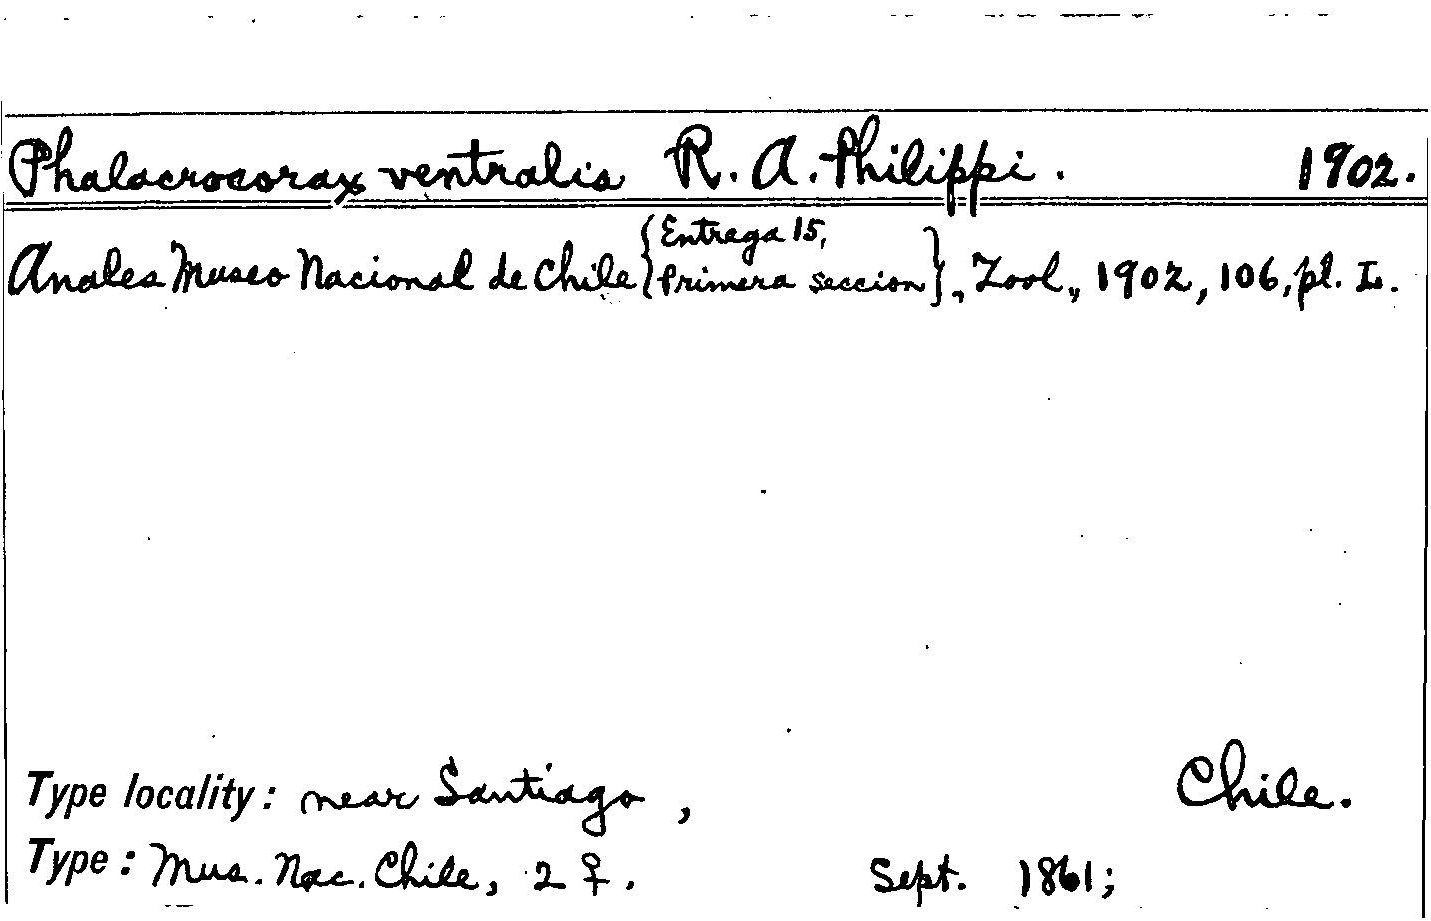 Phalacrocorax ventralis R. A. Philippi. 1902.
Anales Museo Nacional de Chile {Entraga 15, Primera seccion}, Zool., 1902, 106, pl. L.
Type locality: near Santiago, Chile.
Type: Mus. Nac. Chile, 2 ♀. Sept. 1861;